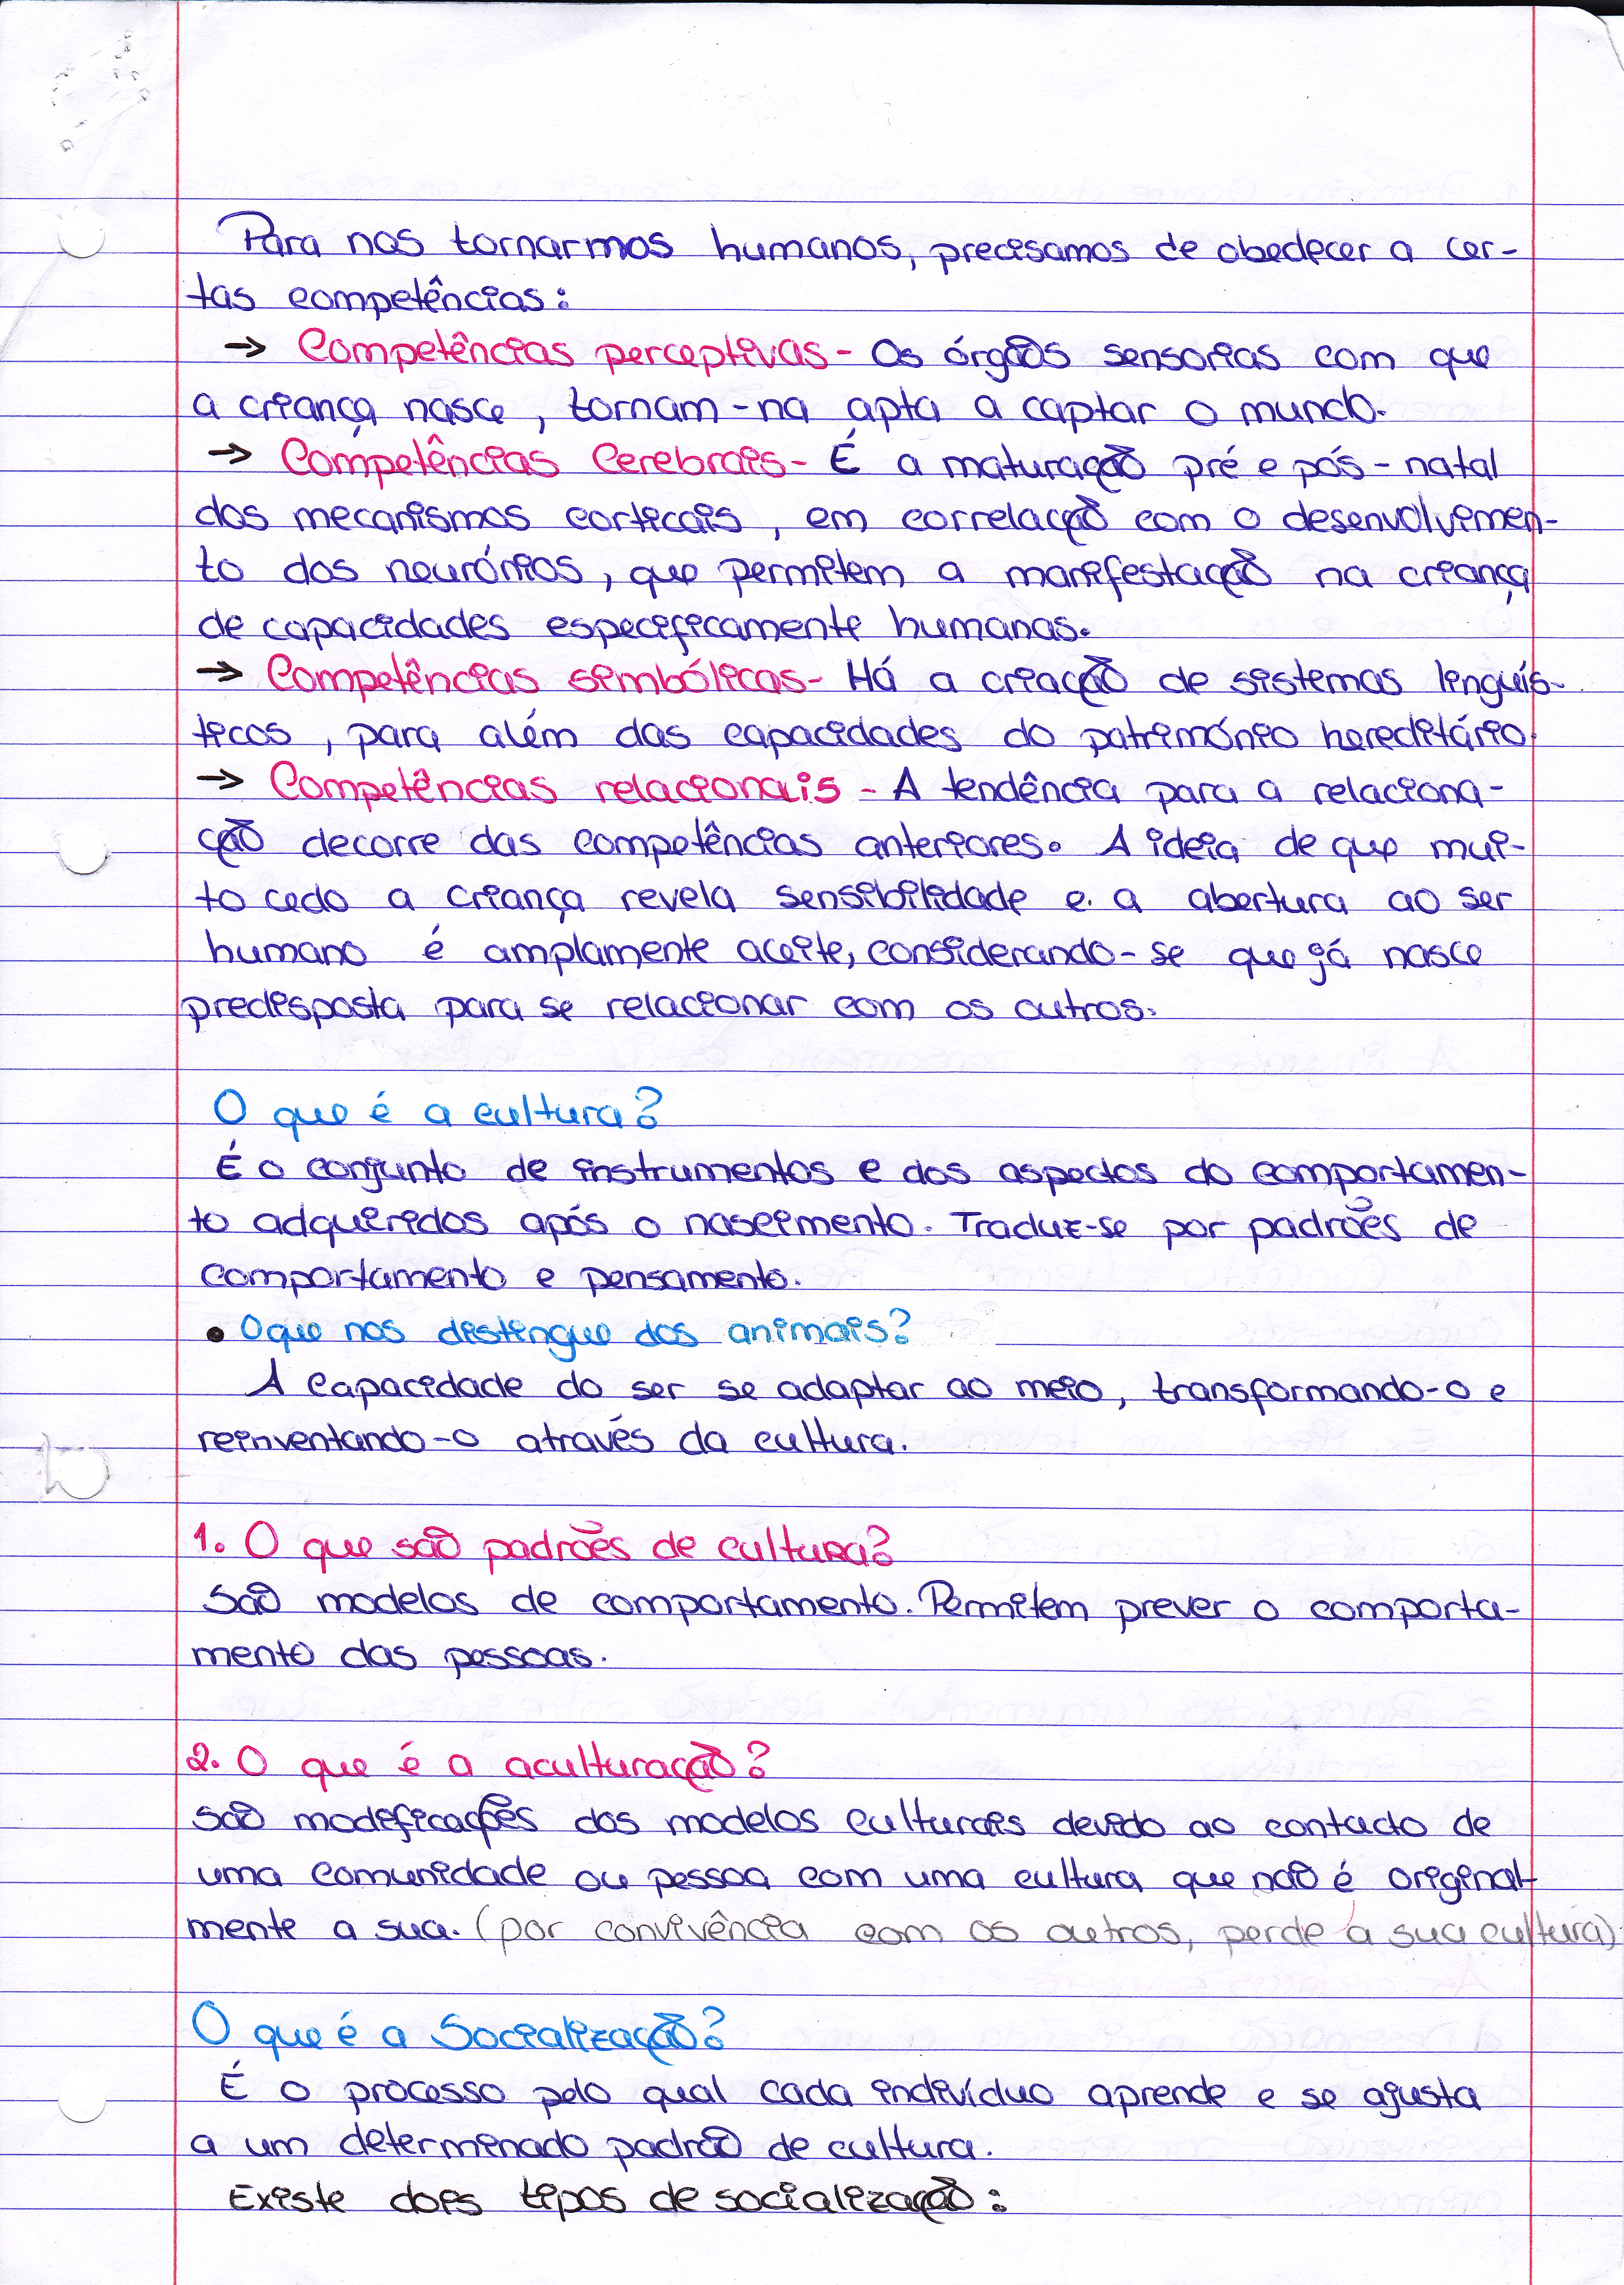 Para nos tornarmos humanos, precisamos de obedecer a cer-
tas competências:
→ Competências perceptivas - Os órgãos sensorias com que
a criança nasce, tornam-na apta a captar o mundo.
→ Competências Cerebrais - É a maturação pré e pós-natal
dos mecanismos corticais, em correlação com o desenvolvimen-
to dos neurónios, que permitem a manifestação na criança
de capacidades especificamente humanas.
→ Competências simbólicas - Há a criação de sistemas linguís-
ticos, para além das capacidades do património hereditário.
→ Competências relacionais - A tendência para a relaciona-
ção decorre das competências anteriores. A ideia de que mui-
to cedo a criança revela sensibilidade e a abertura ao ser
humano é amplamente aceite, considerando-se que já nasce
predisposta para se relacionar com os outros.
O que é a cultura?
É o conjunto de instrumentos e dos aspectos do comportamen-
to adqueridos após o nascimento. Traduz-se por padrões de
comportamento e pensamento.
• O que nos distingue dos animais?
A Capacidade do ser se adaptar ao meio, transformando-o e
reinventando-o através da cultura.
1. O que são padrões de cultura?
São modelos de comportamento. Permitem prever o comporta-
mento das pessoas.
2. O que é a aculturação?
São modificações dos modelos culturais devido ao contacto de
uma comunidade ou pessoa com uma cultura que não é original-
mente a sua. (por convivência com os outros, perde a sua cultura)
O que é a Socialização?
É o processo pelo qual cada indivíduo aprende e se ajusta
a um determinado padrão de cultura.
Existe dois tipos de socialização: